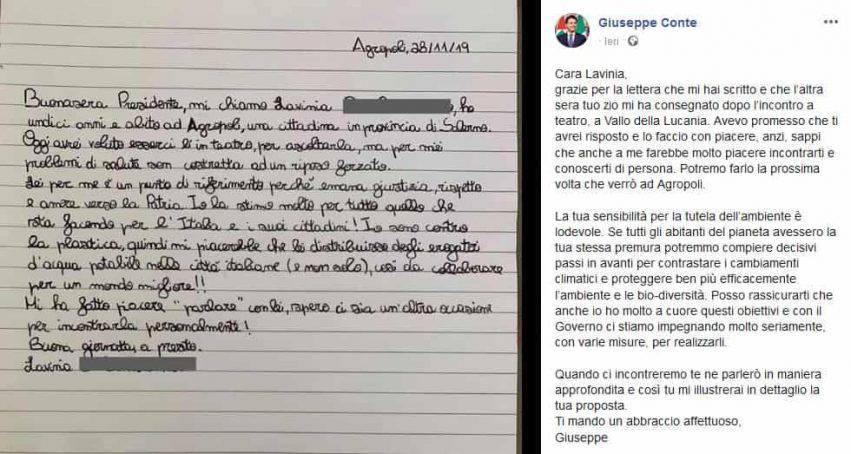 Agropoli, 28/11/19
Buonasera Presidente, mi chiamo Lavinia ho
undici anni e abito ad Agropoli, una cittadina in provincia di Salerno.
Oggi avrei voluto esserci lì in teatro, per ascoltarla, ma per miei
problemi di salute son costretta ad un riposo forzato.
Lei per me è un punto di riferimento perché emana giustizia, rispetto
e amore verso la Patria. Io la stimo molto per tutto quello che
sta facendo per l'Italia e i suoi cittadini! Io sono contro
la plastica, quindi mi piacerebbe che lei distribuisse degli erogatori
d'acqua potabile nelle città italiane (e non solo), così da collaborare
per un mondo migliore!!
Mi ha fatto piacere "parlare" con lei, spero ci sia un'altra occasione
per incontrarla personalmente!
Buona giornata, a presto.
Lavinia
Giuseppe Conte
Ieri ·
Cara Lavinia,
grazie per la lettera che mi hai scritto e che l'altra
sera tuo zio mi ha consegnato dopo l'incontro a
teatro, a Vallo della Lucania. Avevo promesso che ti
avrei risposto e lo faccio con piacere, anzi, sappi
che anche a me farebbe molto piacere incontrarti e
conoscerti di persona. Potremo farlo la prossima
volta che verrò ad Agropoli.
La tua sensibilità per la tutela dell'ambiente è
lodevole. Se tutti gli abitanti del pianeta avessero la
tua stessa premura potremmo compiere decisivi
passi in avanti per contrastare i cambiamenti
climatici e proteggere ben più efficacemente
l'ambiente e le bio-diversità. Posso rassicurarti che
anche io ho molto a cuore questi obiettivi e con il
Governo ci stiamo impegnando molto seriamente,
con varie misure, per realizzarli.
Quando ci incontreremo te ne parlerò in maniera
approfondita e così tu mi illustrerai in dettaglio la
tua proposta.
Ti mando un abbraccio affettuoso,
Giuseppe